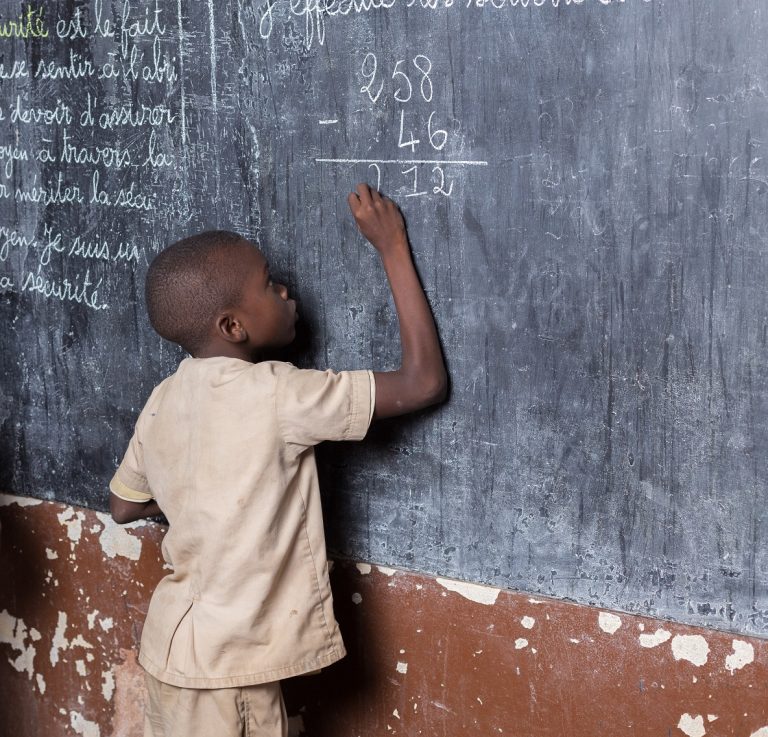 urité est le fait
e se sentir à l'abri
devoir d'assurer
oyen à travers la
r mériter la sécu
yen. Je suis un
a sécurité.
J'effectue les
258
- 46
212